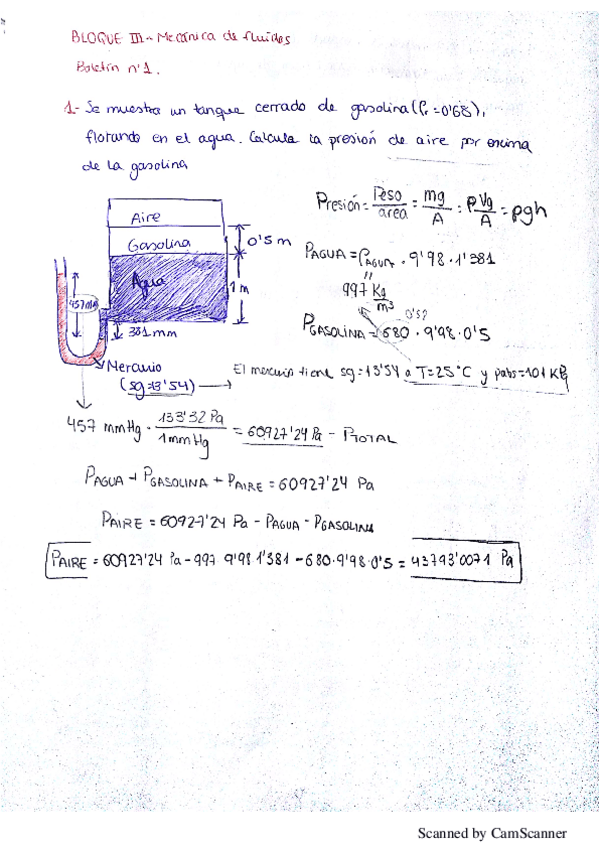 BLOQUE III - Mecánica de fluidos
Boletín nº1.
1- Se muestra un tanque cerrado de gasolina (ρr = 0'68),
flotando en el agua. Calcula la presión de aire por encima
de la gasolina
Presión = Peso/area = mg/A = ρVg/A = ρgh
Aire
Gasolina
0'5 m
Agua
1 m
457mm
381 mm
Mercurio
(sg=13'54)
PAGUA = ρAGUA · 9'98 · 1'381
997 Kg/m³
0'5?
PGASOLINA = 680 · 9'98 · 0'5
El mercurio tiene sg=13'54 a T=25°C y pabs=101 KPa
457 mmHg · 133'32 Pa/1mmHg = 60927'24 Pa - PTOTAL
PAGUA + PGASOLINA + PAIRE = 60927'24 Pa
PAIRE = 60927'24 Pa - PAGUA - PGASOLINA
PAIRE = 60927'24 Pa - 997 · 9'98 · 1'381 - 680 · 9'98 · 0'5 = 43793'0071 Pa
Scanned by CamScanner